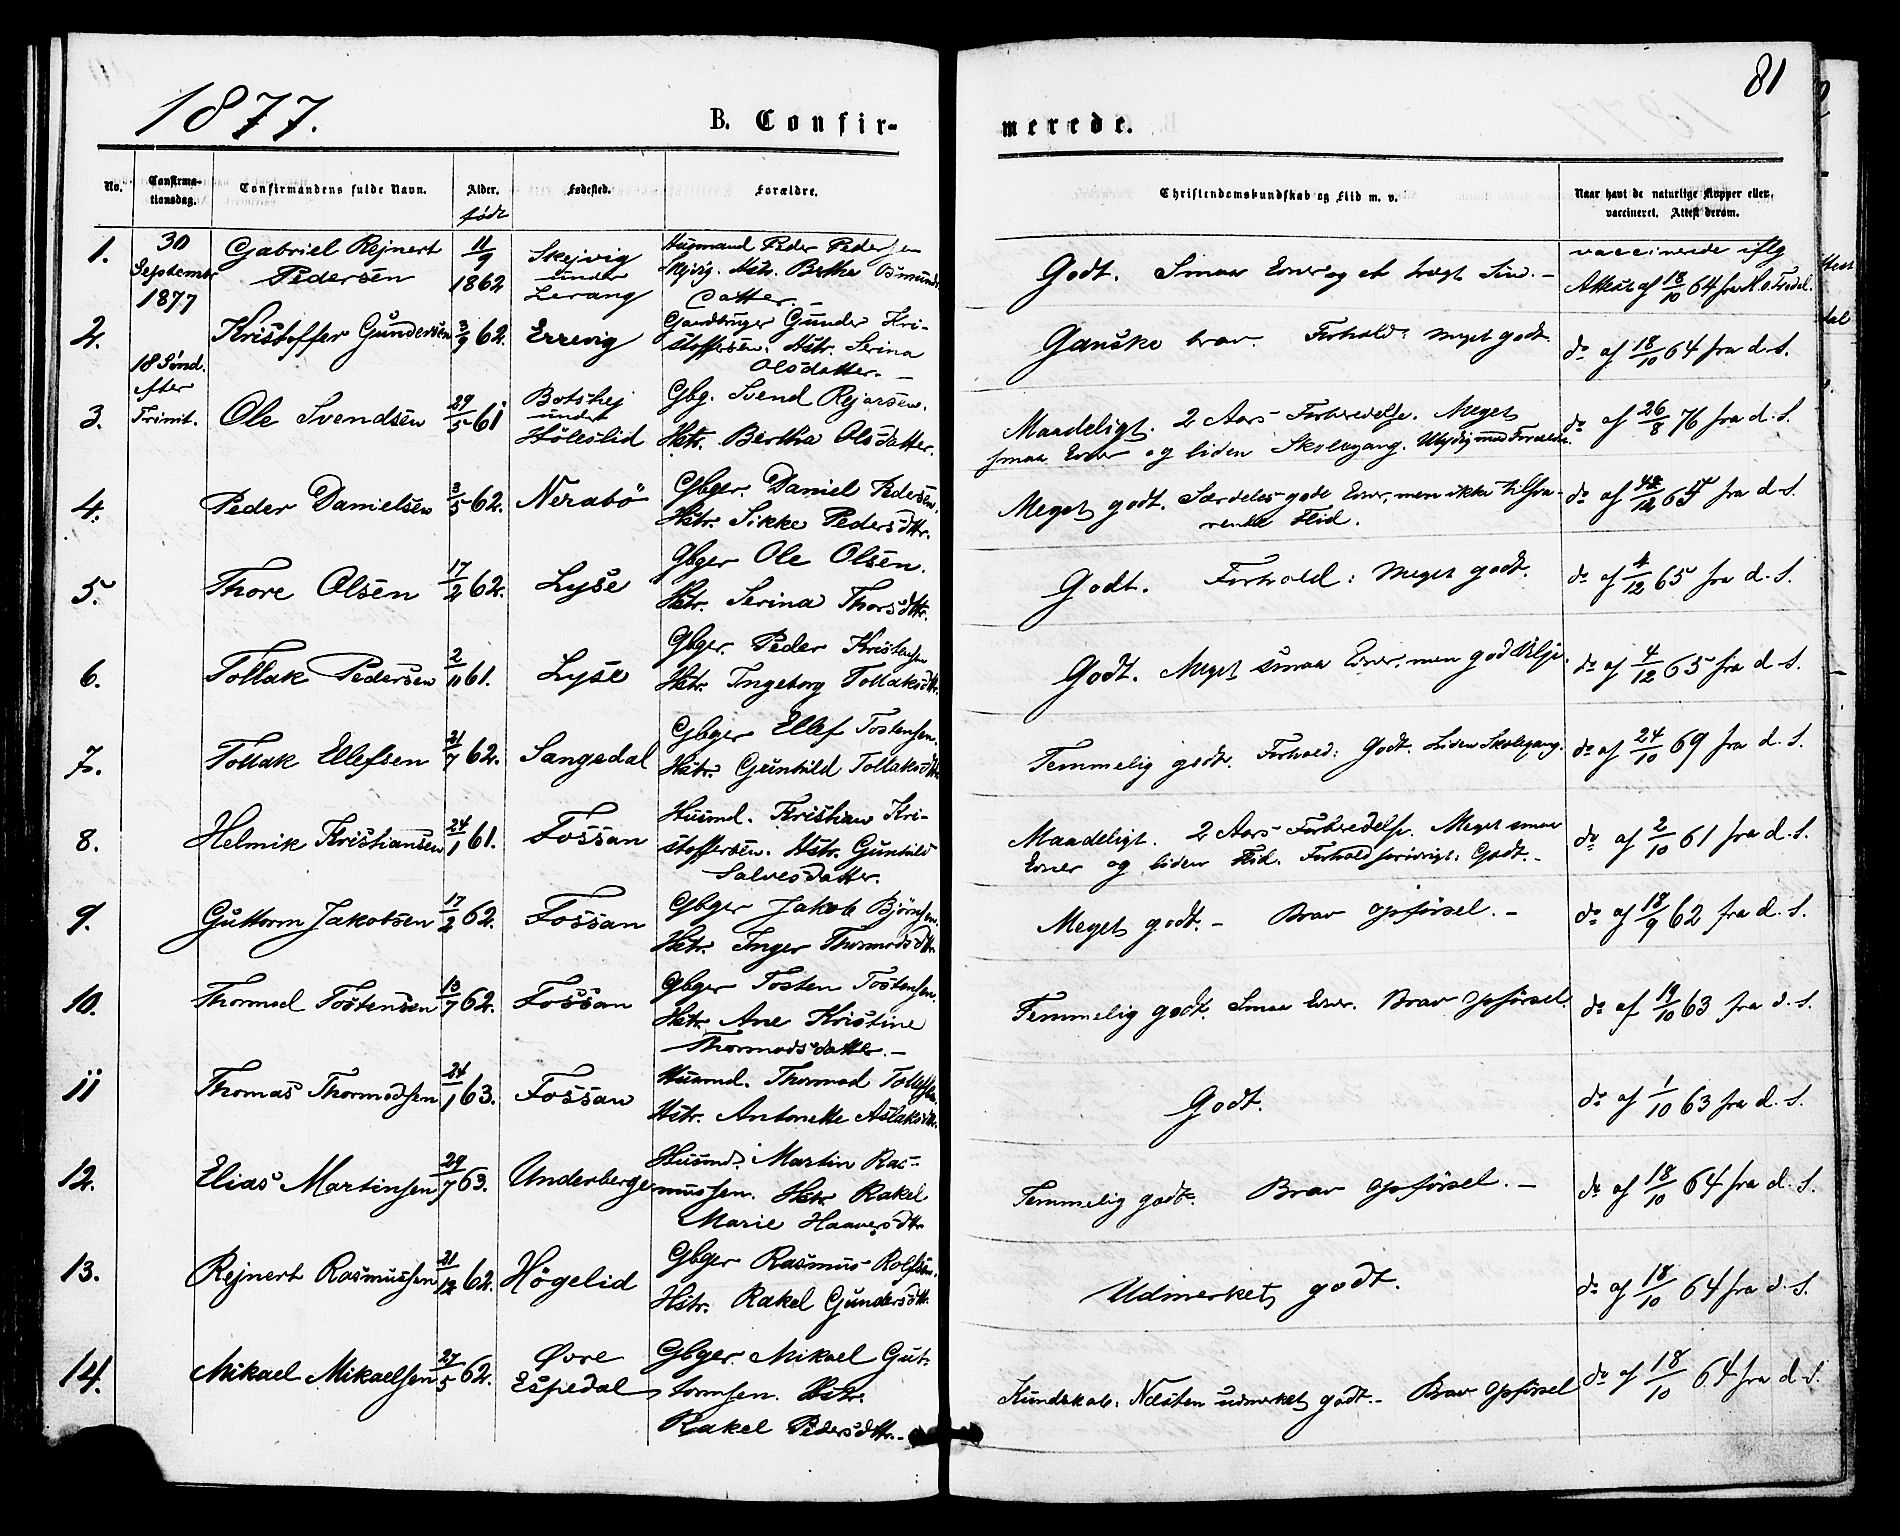 81
1877.
B. Confir-
merede.
No.
Confirma-
tionsdag.
Confirmandens fulde Navn.
Alder.
født
Fødested.
Forældre.
Christendomskundskab og Flid m. v.
Naar havt de naturlige Kopper eller
vaccineret. Attest derom.
1.
30
September
1877
Gabriel Rejnert
Pedersen
11/9
1862
Skejvig
under
Lerang
Husmand Peder Pedersen
Skejvig. Hstr. Berthe Osmunds
Datter. –
Godt. Smaa Evner og et trægt Sind. –
vaccinerede iflg
Attest af 18/10 64 fra
2.
18 Sønd.
efter
Trinit.
Kristoffer Gundersen
3/9 62.
Errevig
Gaardbruger Gunder Kri-
stoffersen. Hstr. Serina
Olsdatter. –
Ganske brav. Forhold: meget godt.
do af 18/10 64 fra d. S.
3.
Ole Svendsen
29/5 61
Botshej
under
Höleslid
Gbg. Svend Rejarsen.
Hstr. Berthe Olsdatter.
Maadeligt. 2 Aars Forberedelse. Meget
smaa Evner og liden Skolegang. Ulydig mod Forældre.
do af 26/8 76 fra d. S.
4.
Peder Danielsen
3/5 62.
Nerabö
Gbger. Daniel Pedersen.
Hstr. Sikke Pedersdtr.
Meget godt. Særdeles gode Evner, men ikke tilsva-
rende Flid.
do af 4/12 65 fra d. S.
5.
Thore Olsen
17/2 62.
Lyse
Gbger Ole Olsen.
Hstr. Serina Thorsdtr.
Godt. Forhold: Meget godt.
do af 4/12 65 fra d. S.
6.
Tollak Pedersen
2/11 61.
Lyse
Gbger. Peder Kristensen
Hstr. Ingeborg Tollaksdtr.
Godt. Meget smaa Evner, men god Vilje.
do af 4/12 65 fra d. S.
7.
Tollak Ellefsen
21/7 62.
Sangesdal
Gbger Ellef Tostensen.
Hstr. Gunhild Tollaksdtr.
Temmelig godt. Forhold: Godt. Liden Skolegang.
do af 24/10 69 fra d. S.
8.
Helmik Kristiansen
24/1 61.
Fossan
Husmd. Kristian Kri-
stoffersen. Hstr. Gunhild
Salvesdatter.
Maadeligt. 2 Aars Forberedelse. Meget smaa
Evner og liden Flid. Forhold forøvrigt: Godt. –
do af 2/10 61 fra d. S.
9.
Guttorm Jakobsen
17/2 62.
Fossan
Gbger Jakob Bjørnsen.
Hstr. Inger Thormodsdtr.
Meget godt. – Brav Opførsel. –
do af 18/9 62 fra d. S.
10.
Thormod Tostensen
13/7 62.
Fossan
Gbger Tosten Tostensen.
Hstr. Ane Kristine
Thormodsdatter. –
Temmelig godt. Smaa Evner. Brav Opførsel
do af 19/10 63 fra d. S.
11
Thomas Thormodsen
24/1 63.
Fossan
Husmd. Thormod Tollefsen
Hstr. Antonette Aslaksdtr.
Godt.
do af 1/10 63 fra d. S.
12.
Elias Martinsen
29/7 63.
Underberge
Husmd. Martin Ras-
mussen. Hstr. Rakel
Marie Haaversdtr.
Temmelig godt. Brav Opførsel. –
do af 18/10 64 fra d. S.
13.
Rejnert Rasmussen
21/12 62.
Högelid
Gbger Rasmus Rolfsen.
Hstr. Rakel Gundersdtr.
Udmerket godt.
do af 18/10 64 fra d. S.
14.
Mikael Mikaelsen
27/5 62.
Øvre
Espedal
Gbger. Mikael Gut-
tormsen. Hstr.
Rakel Pedersdtr. –
Kundskab: Næsten udmerket godt. – Brav Opførsel
do af 18/10 64 fra d. S.